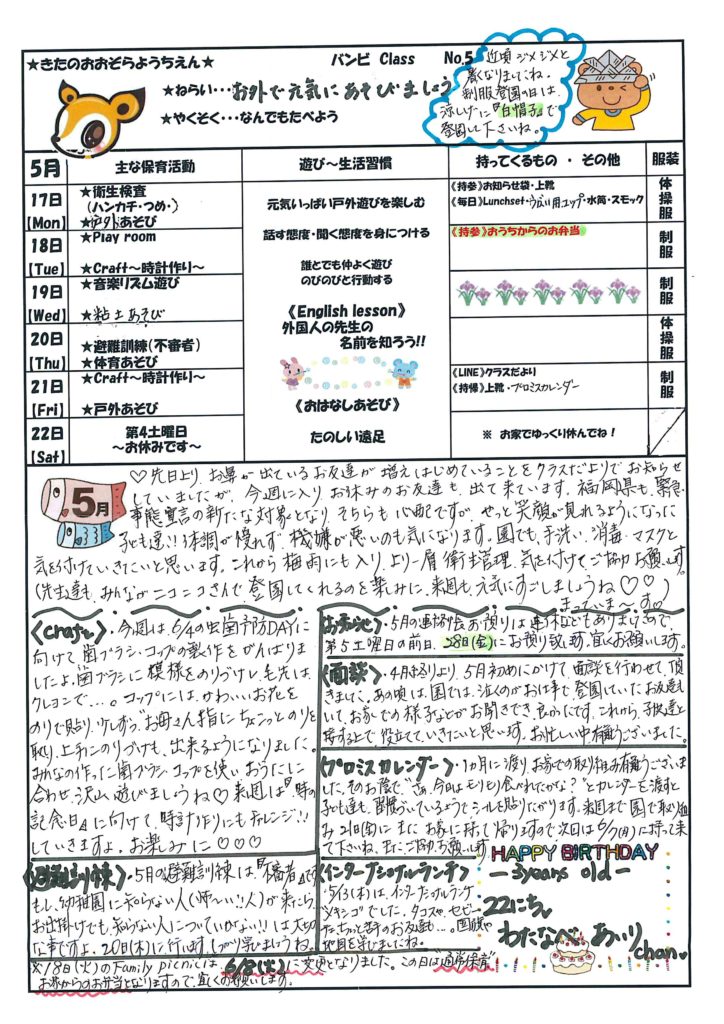 ★きたのおおぞらようちえん★
バンビ Class No.5
★ねらい…お外で元気にあそびましょう
★やくそく…なんでもたべよう
近頃 ジメジメと
暑くなりましたね。
制服登園の日は、
涼しげに『白帽子』で
登園して下さいね。
5月 主な保育活動 遊び～生活習慣 持ってくるもの ・ その他 服装
17日
【Mon】
★衛生検査
(ハンカチ・つめ・)
★戸外あそび
元気いっぱい戸外遊びを楽しむ
《持参》お知らせ袋・上靴
《毎日》Lunchset・うがい用コップ・水筒・スモック
体操服
18日
【Tue】
★Play room
★Craft～時計作り～
話す態度・聞く態度を身につける
《持参》おうちからのお弁当
制服
19日
【Wed】
★音楽リズム遊び
★粘土あそび
誰とでも仲よく遊び
のびのびと行動する
制服
20日
【Thu】
★避難訓練(不審者)
★体育あそび
《English lesson》
外国人の先生の
名前を知ろう!!
体操服
21日
【Fri】
★Craft～時計作り～
★戸外あそび
《おはなしあそび》
《LINE》クラスだより
《持帰》上靴・プロミスカレンダー
制服
22日
【Sat】
第4土曜日
～お休みです～
たのしい遠足
※ お家でゆっくり休んでね！
5月
♡先日より、お鼻が出ているお友達が増えはじめていることをクラスだよりでお知らせ
していましたが、今週に入り、お休みのお友達も、出て来ています。福岡県も、緊急
事態宣言の新たな対象となり、そちらも心配ですが、せっと笑顔が見れるようになった
子ども達!!体調が優れず、機嫌が悪いのも気になります。園でも、手洗い、消毒・マスクと
気を付けていきたいと思います。これから梅雨にも入り、より一層衛生管理、気を付けてご協力お願いします。
(先生達も、みんながニコニコさんで登園してくれるのを楽しみに、来週も元気にすごしましょうね♡♡
まっていま～す♡)
〈craft〉・今週は、6/4の虫歯予防DAYに
向けて、歯ブラシ・コップの製作をがんばりま
したよ。歯ブラシに模様をのりづけし、毛先は、
クレヨンで…。コップには、かわいいお花を
のりで貼り、少しずつ、お母さん指にちょこっとのりを
取り、上手にのりづけも、出来るようになりました。
みんなの作った歯ブラシ、コップを使い、おうたに
合わせ、沢山遊びましょうね♡来週は『時の
記念日』に向けて、時計作りにもチャレンジ!!
していきますよ。お楽しみに♡♡♡
〈お知らせ〉・5月の運動会お預りは連休などもありますので、
第5土曜日の前日、28日(金)にお預り致します。宜しくお願いします。
〈面談〉・4月終りより、5月初めにかけて、面談を行わせて頂
きました。あの頃は、園では、泣くのがお仕事で登園していたお友達も
いて、お家での様子などがお聞きでき、良かったです。これから、子供達と
接する上で、役立てていきたいと思います。お忙しい中、有難うございました。
〈プロミスカレンダー〉・1カ月に渡り、お家での取り組み有難うございま
した。そのお蔭で"さぁ、今日はモリモリ食べれたかな？"とカレンダーを渡すと
子ども達も、習慣づいているようでシールを貼りたがります。来週まで園で取り組
み21日(金)にまたお家に持って帰りますので次回は6/7(月)に持って来
て下さいね。またご協力お願いします。
〈避難訓練〉・5月の避難訓練は『不審者』です。
もし、幼稚園に知らない人(怖～い!!人)が来たら、
お出掛けでも、知らない人についていかない!!は大切
な事ですよ。20日(木)に行います。しっかり学びましょうね。
〈インターナショナルランチ〉
・5/13(木)は、インターナショナルランチ
メキシコでした。タコスや、セビー
だったかな…。国旗や
地図を学びましたね。
HAPPY BIRTHDAY
-3years old-
22にち
わたなべ あいり
chan♥
※18日(火)のFamily picnicは、6/8(火)に変更となりました。この日は"通常保育"
お家からのお弁当となりますので、宜しくお願いします。